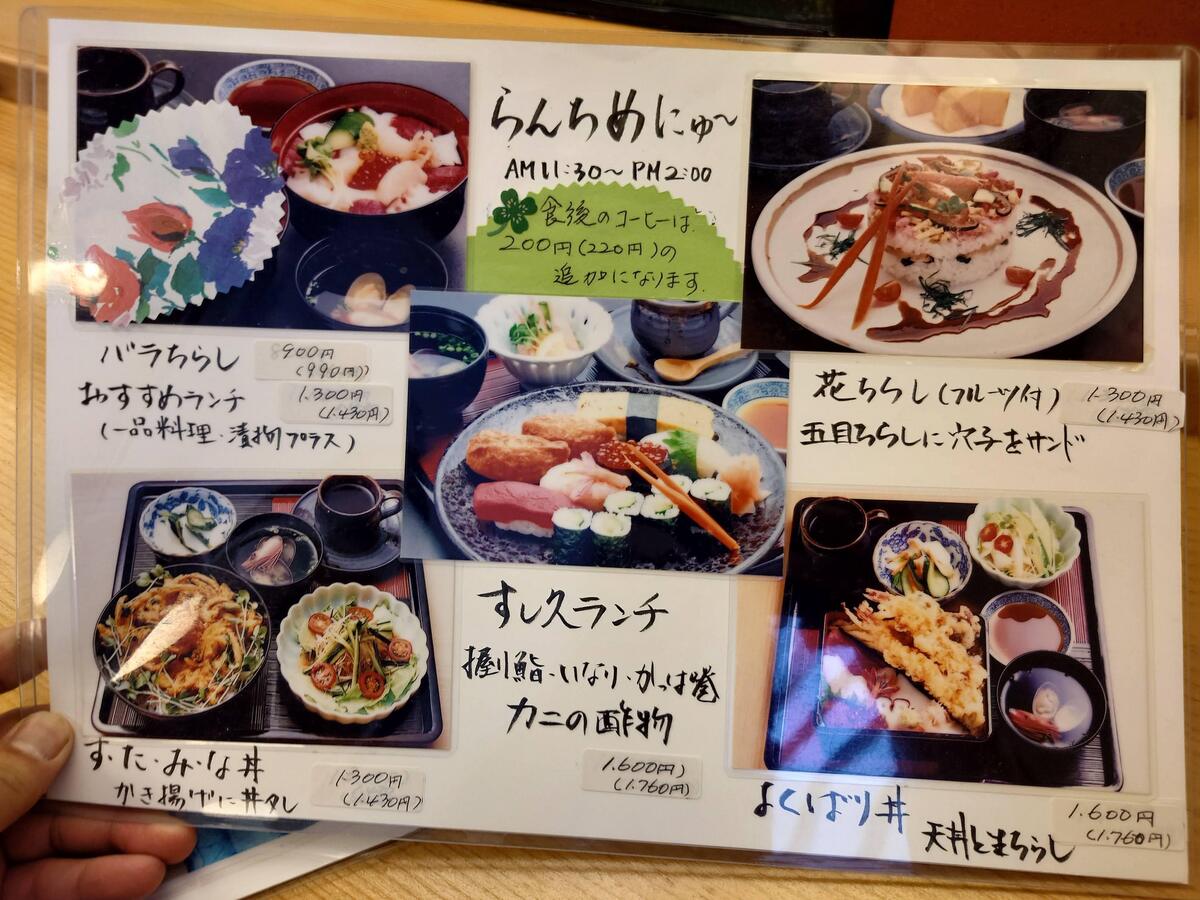 らんちめにゅ〜
AM11:30〜PM2:00
食後のコーヒーは
200円(220円)の
追加になります.
バラちらし
900円
(990円)
おすすめランチ
1.300円
(1.430円)
(一品料理・漬物プラス)
花ちらし(フルーツ付)
1.300円
(1.430円)
五目ちらしに穴子をサンド
す・た・み・な丼
かき揚げに丼タレ
1.300円
(1.430円)
すし久ランチ
握り鮨・いなり・かっぱ巻
カニの酢物
1.600円)
(1.760円)
よくばり丼
天丼と生ちらし
1.600円
(1.760円)